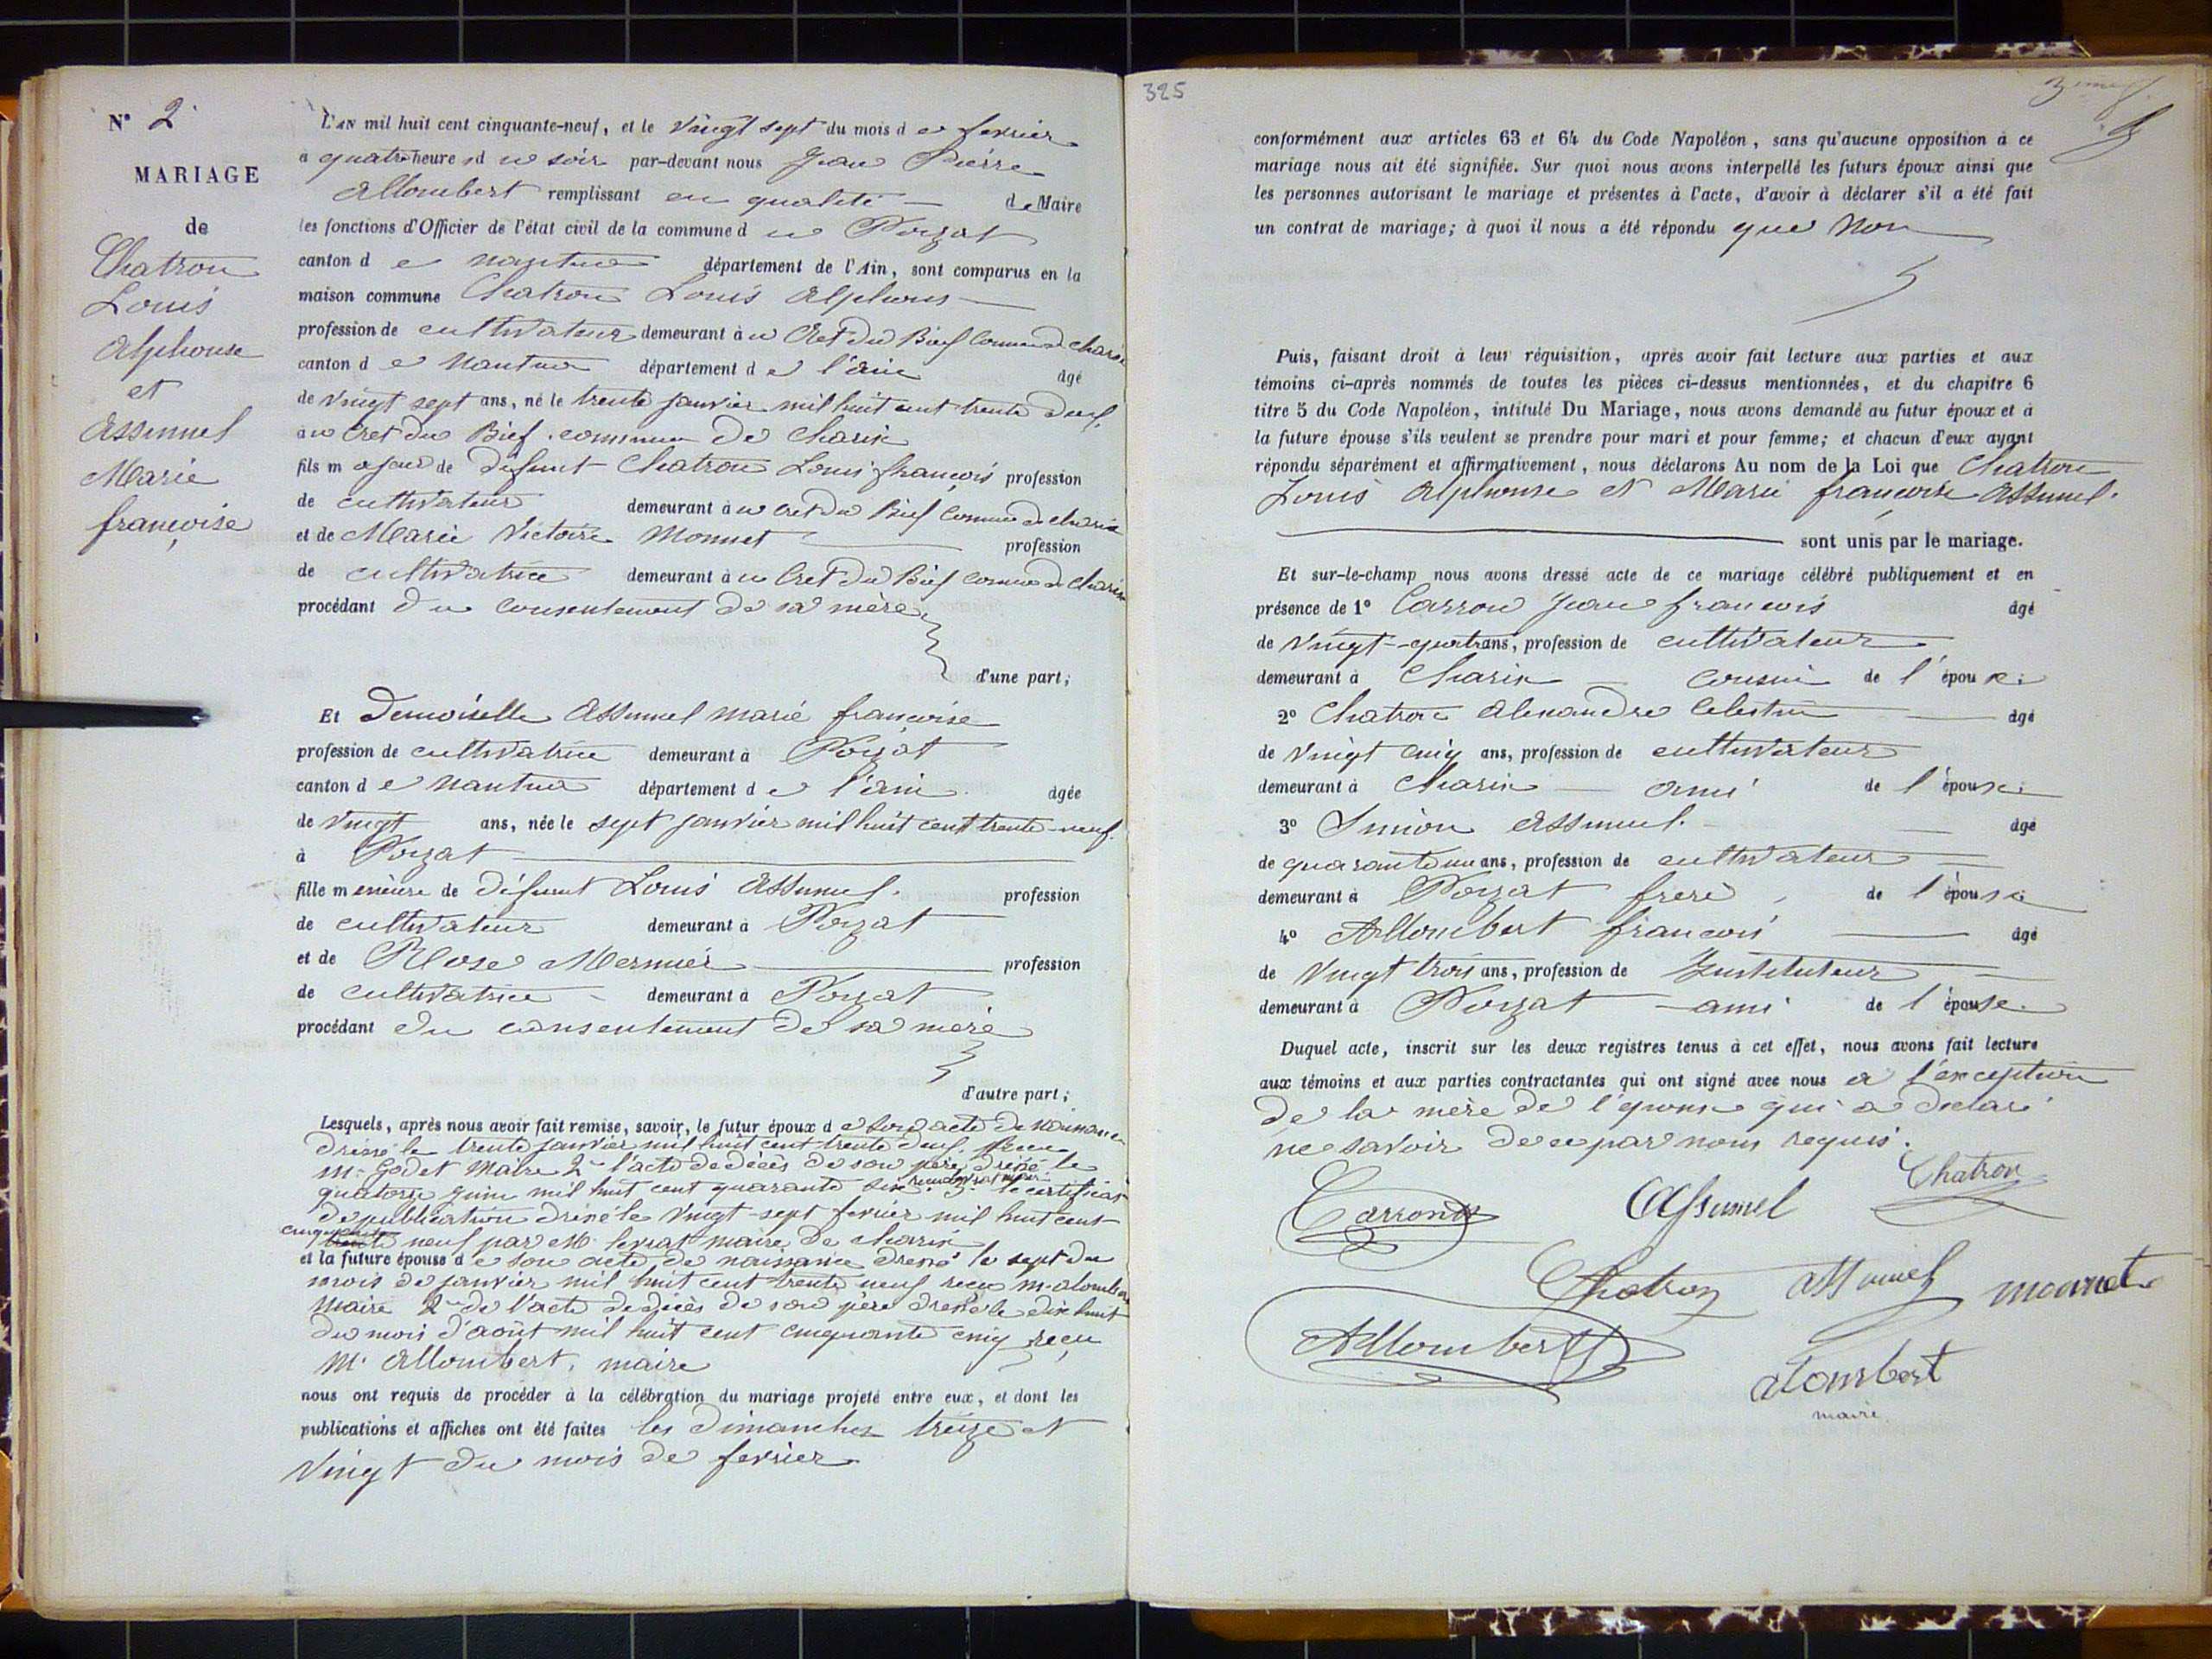 N° 2
MARIAGE
de
Chatron
Louis
Alphonse
et
Assumel
Marie
françoise
L'AN mil huit cent cinquante-neuf, et le vingt sept du mois de fevrier
a quatre heures du soir par-devant nous Jean Pierre
Allombert remplissant en qualité de Maire
les fonctions d'Officier de l'état civil de la commune du Poizat
canton de nantua département de l'Ain, sont comparus en la
maison commune Chatron Louis Alphons
profession de cultivateur demeurant à u Cret du Bief Commune de Charix
canton de Nantua département de l'ain âgé
de vingt sept ans, né le trente janvier mil huit cent trente deux,
au Cret du Bief commune de Charix
fils majeur de défunt Chatron Louis françois profession
de cultivateur demeurant à u Cret du Bief Commune de charix
et de Marie Victoire Monnet profession
de cultivatrice demeurant à u Cret du Bief Commune de Charix
procédant du consentement de sa mère
d'une part;
Et Demoiselle Assumel marie françoise
profession de cultivatrice demeurant à Poizat
canton de Nantua département de l'ain âgée
de vingt ans, née le sept janvier mil huit cent trente-neuf.
à Poizat
fille mineure de défunt Louis Assumel. profession
de cultivateur demeurant à Poizat
et de Rose Mermier profession
de cultivatrice demeurant à Poizat
procédant du consentement de sa mère
d'autre part;
Lesquels, après nous avoir fait remise, savoir, le futur époux de son acte de naissance
dressé le trente janvier mil huit cent trente deux, recu
Mr Godet Maire 2° l'acte de décès de son père, dressé le
quatorze juin mil huit cent quarante six 3° le certificat
de publication dressé le vingt-sept fevrier mil huit cent
cinquante neuf par Mr levrat maire de charix
et la future épouse de son acte de naissance dressé le sept du
mois de janvier mil huit cent trente neuf reçu m. alombert
Maire 2° de l'acte de décès de son père dressé le dix huit
du mois d'août mil huit cent cinquante cinq reçu
Mr Allombert, maire
nous ont requis de procéder à la célébration du mariage projeté entre eux, et dont les
publications et affiches ont été faites les dimanches treize et
vingt du mois de fevrier
325
conformément aux articles 63 et 64 du Code Napoléon, sans qu'aucune opposition à ce
mariage nous ait été signifiée. Sur quoi nous avons interpellé les futurs époux ainsi que
les personnes autorisant le mariage et présentes à l'acte, d'avoir à déclarer s'il a été fait
un contrat de mariage; à quoi il nous a été répondu que Non
Puis, faisant droit à leur réquisition, après avoir fait lecture aux parties et aux
témoins ci-après nommés de toutes les pièces ci-dessus mentionnées, et du chapitre 6
titre 5 du Code Napoléon, intitulé Du Mariage, nous avons demandé au futur époux et à
la future épouse s'ils veulent se prendre pour mari et pour femme; et chacun d'eux ayant
répondu séparément et affirmativement, nous déclarons Au nom de la Loi que Chatron
Louis Alphonse et Marie françoise Assumel.
sont unis par le mariage.
Et sur-le-champ nous avons dressé acte de ce mariage célébré publiquement et en
présence de 1° Carron Jean francois âgé
de vingt-quatre ans, profession de cultivateur
demeurant à Charix cousin de l'épouse
2° Chatron Alexandre Celestin âgé
de vingt cinq ans, profession de cultivateur
demeurant à Charix ami de l'épouse
3° Simon Assumel. âgé
de quarante un ans, profession de cultivateur
demeurant à Poizat frere de l'épouse
4° Allombert francois âgé
de vingt trois ans, profession de Instituteur
demeurant à Poizat ami de l'épouse.
Duquel acte, inscrit sur les deux registres tenus à cet effet, nous avons fait lecture
aux témoins et aux parties contractantes qui ont signé avec nous a l'exception
de la mère de l'épouse qui a declaré
ne savoir de ce par nous requis.
Carron
Assumel
Chatron
Chatron
assumel
monnet
Allombert
alombert
maire